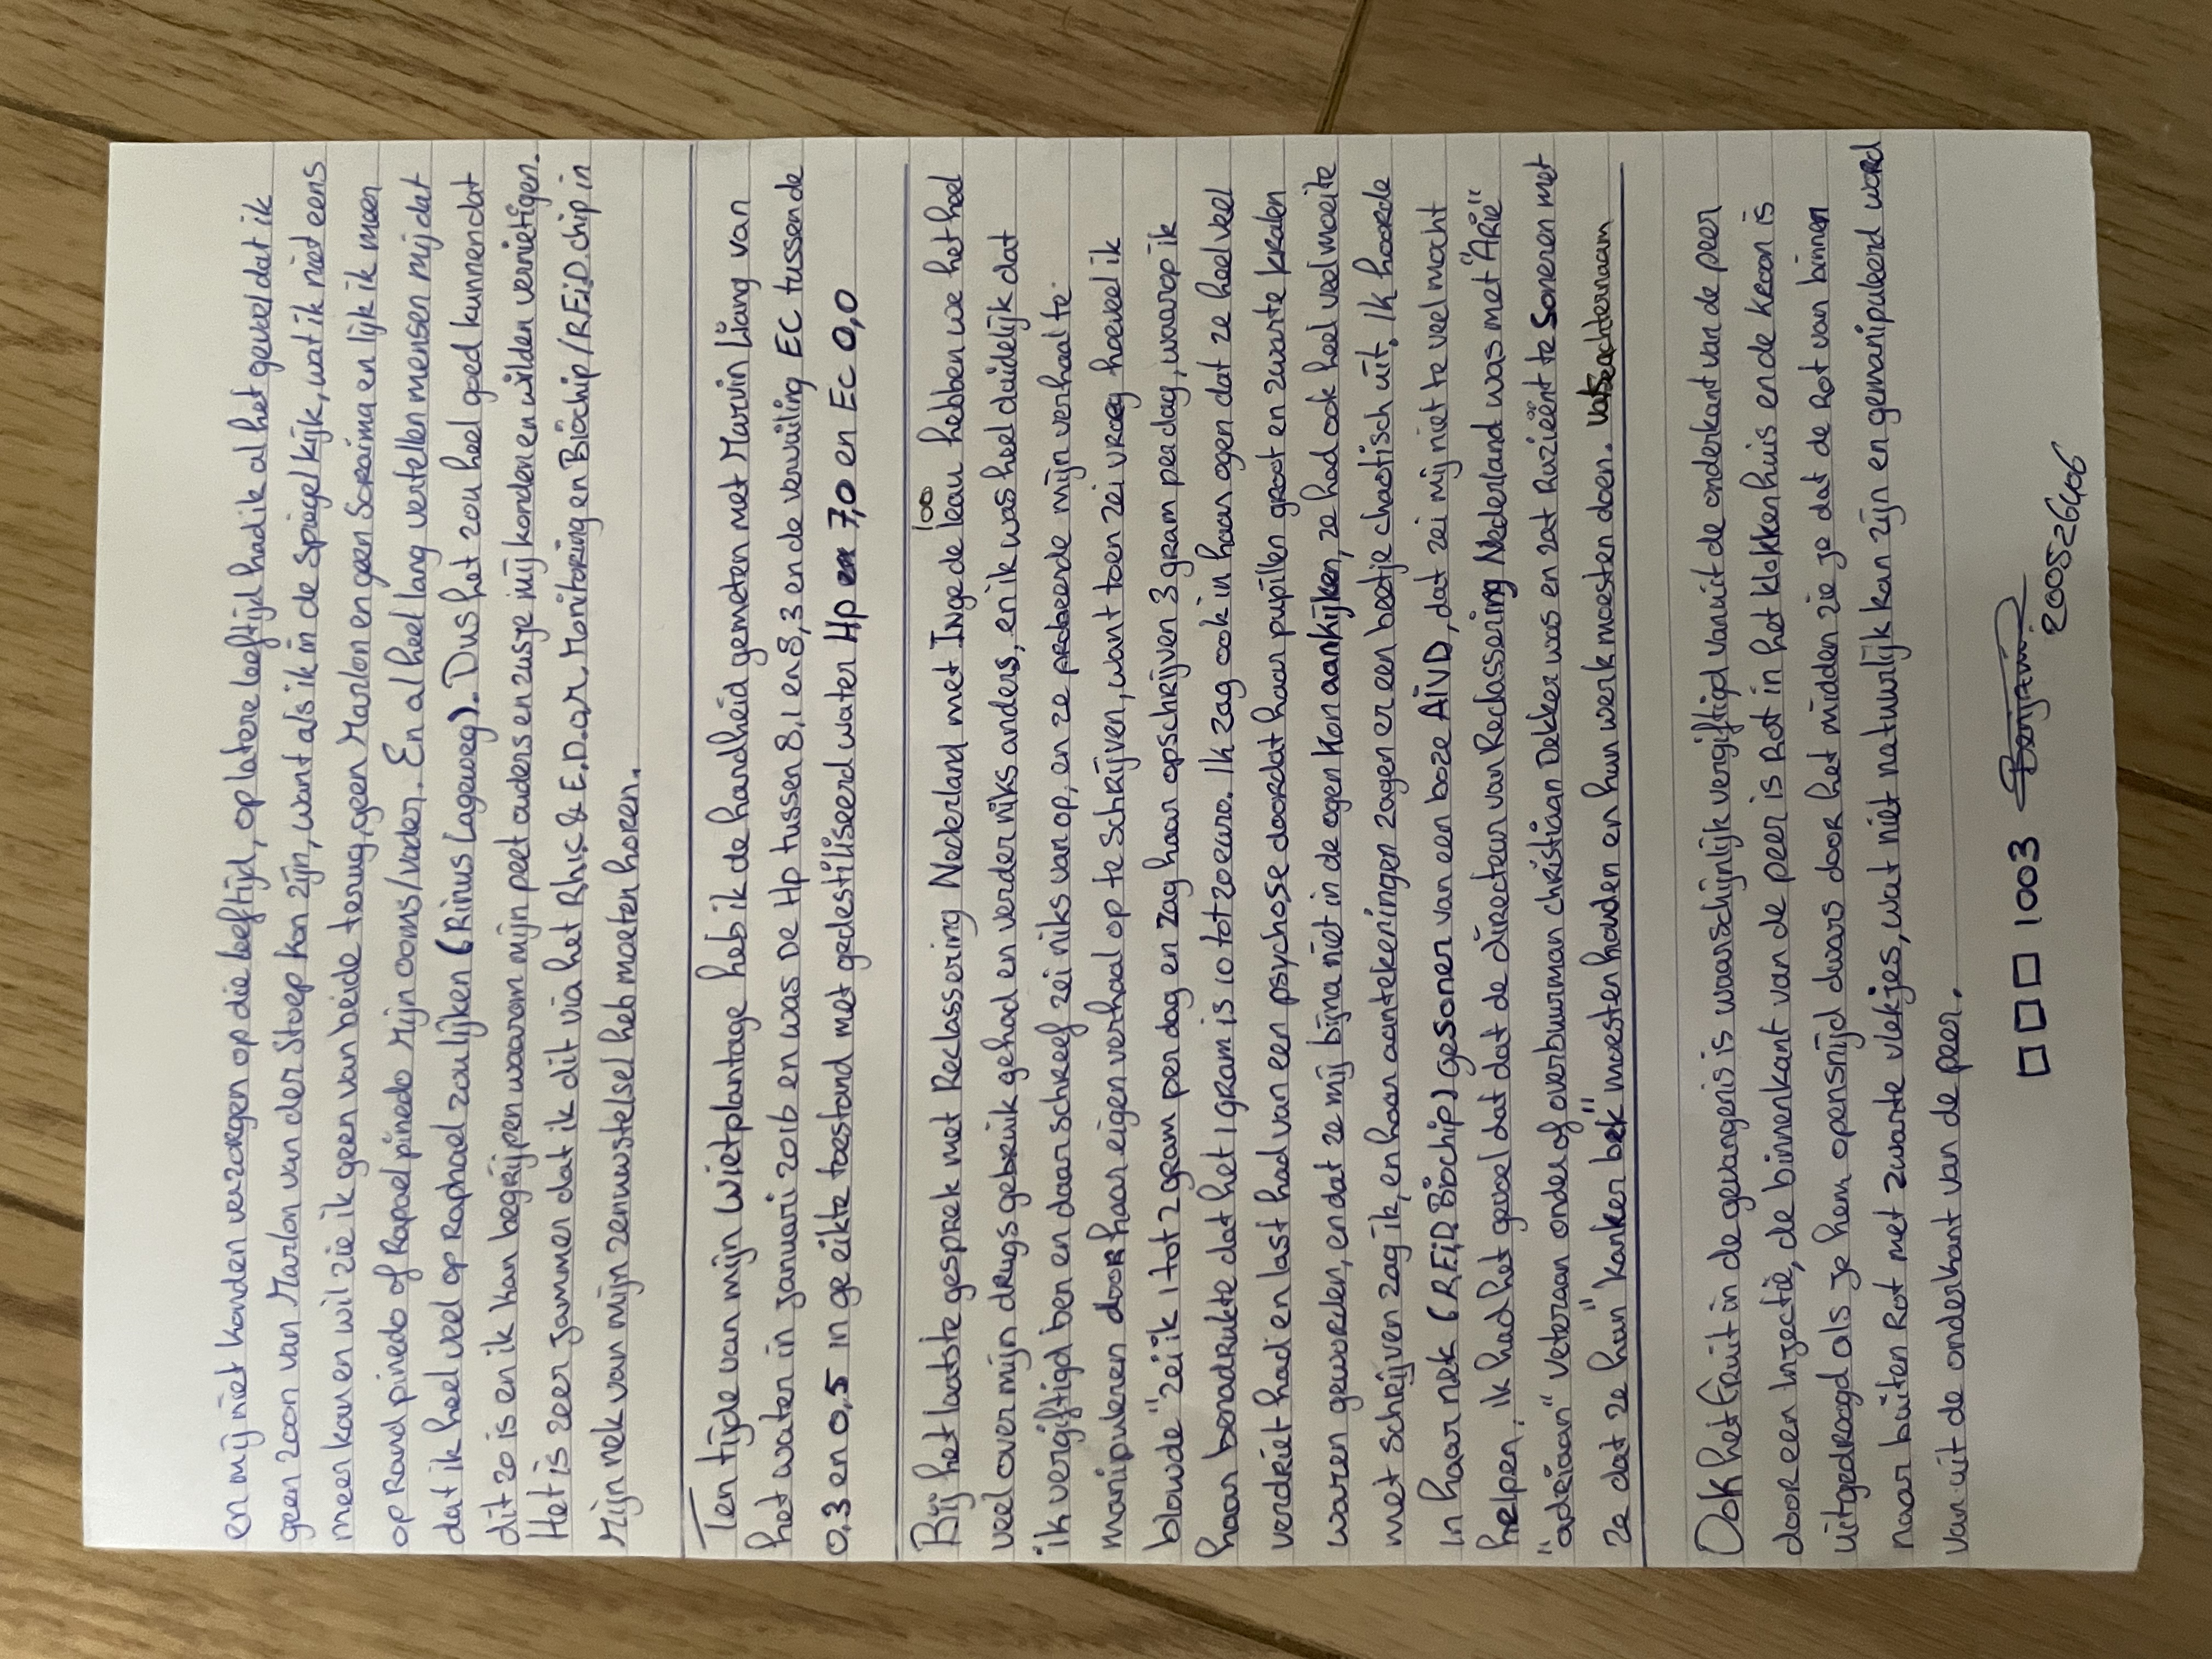 en mij niet konden verzorgen op die leeftijd, op latere leeftijd had ik al het gevoel dat ik
geen zoon van Marlon van der Stoep kon zijn, want als ik in de spiegel kijk, wat ik niet eens
meer kan en wil zie ik geen van beide terug, geen Marlon en geen Soraima en lijk ik meer
op Rand pinedo of Rapael pinedo Mijn ooms/vader. En al heel lang vertellen mensen mij dat
dat ik heel veel op Raphael zou lijken (Rinus Lageweg). Dus het zou heel goed kunnen dat
dit zo is en ik kan begrijpen waarom mijn peet ouders en zusje mij konden en wilden vernietigen.
Het is zeer jammer dat ik dit via het Rhis & E.D.a.r. Monitoring en Biochip/RFiD chip in
Mijn nek van mijn zenuwstelsel heb moeten horen.
Ten tijde van mijn wietplantage heb ik de hardheid gemeten met Marvin Liang van
het water in januari 2016 en was De Hp tussen 8,1 en 8,3 en de vervuiling EC tussen de
0,3 en 0,5 in ge eikte toestand met gedestiliseerd water Hp 7,0 en Ec 0,0
Bij het laatste gesprek met Reclassering Nederland met Inge de leau hebben we het heel
veel over mijn drugs gebruik gehad en verder niks anders, en ik was heel duidelijk dat
ik vergiftigd ben en daar schreef zei niks van op, en ze probeerde mijn verhaal te
manipuleren door haar eigen verhaal op te schrijven, want toen zei vroeg hoeveel ik
blowde "zei ik 1 tot 2 gram per dag en zag haar opschrijven 3 gram per dag, waarop ik
haar benadrukte dat het 1 gram is 10 tot 20 euro. Ik zag ook in haar ogen dat ze heel veel
verdriet had en last had van een psychose doordat haar pupillen groot en zwarte kralen
waren geworden, en dat ze mij bijna niet in de ogen kon aankijken, ze had ook heel veel moeite
met schrijven zag ik, en haar aantekeningen zagen er een beetje chaotisch uit. Ik hoorde
in haar nek (RFiD Biochip) gesoneer van een boze AIVD, dat zei mij niet te veel mocht
helpen, ik had het gevoel dat dat de directeur van Reclassering Nederland was met "Arie"
"adriaan" Veteraan onder of overbuurman christiaan Dekker was en zat Ruziënt te Soneren met
ze dat ze hun "kanker bek" moesten houden en hun werk moesten doen.
Ook het fruit in de gevangenis is waarschijnlijk vergiftigd vanuit de onderkant van de peer
door een Injectie, de binnenkant van de peer is Rot in het klokkenhuis en de kroon is
uitgedroogd als je hem opensnijd dwars door het midden zie je dat de Rot van binnen
naar buiten Rot met zwarte vlekjes, wat niet natuurlijk kan zijn en gemanipuleerd word
van uit de onderkant van de peer.
1003 Benjamin
200526406